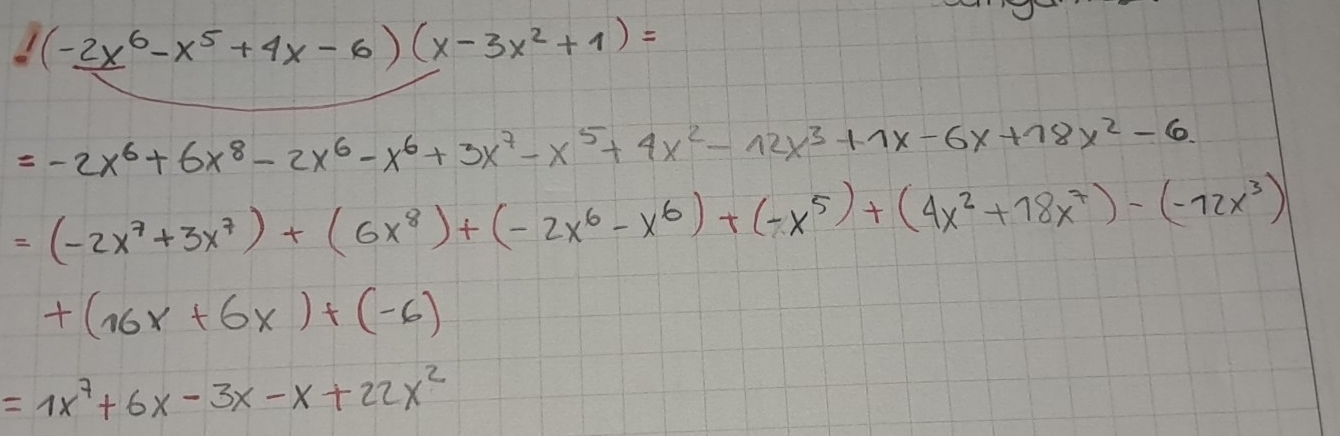 !(-2x⁶-x⁵+4x-6)(x-3x²+1)=
=-2x⁶+6x⁸-2x⁶-x⁶+3x⁷-x⁵+4x²-12x³+1x-6x+18x²-6.
=(-2x⁷+3x⁷)+(6x⁸)+(-2x⁶-x⁶)+(-x⁵)+(4x²+18x⁷)-(-12x³)
+(16x+6x)+(-6)
=1x⁷+6x-3x-x+22x²